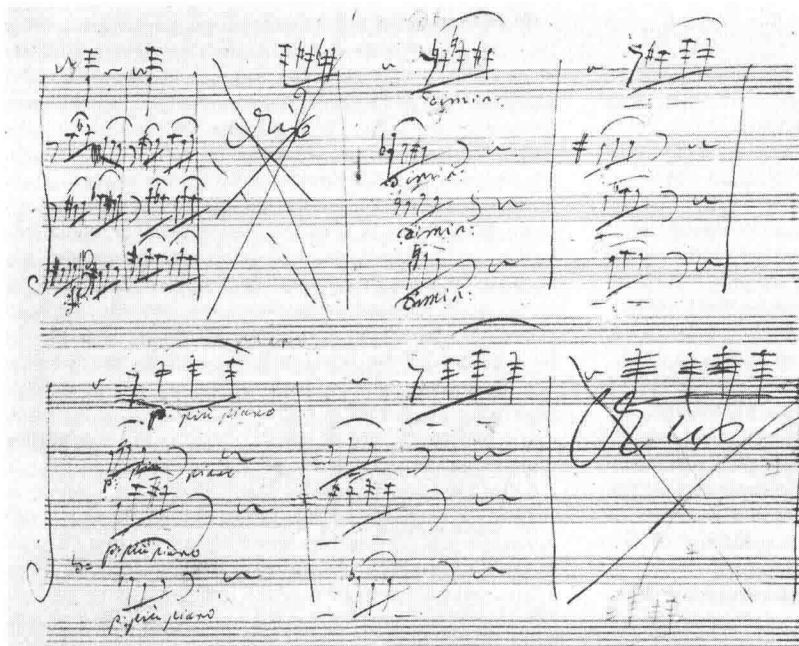 dimin:
dimin:
dimin:
dimin:
più piano
p. più piano
p. più piano
p. più piano